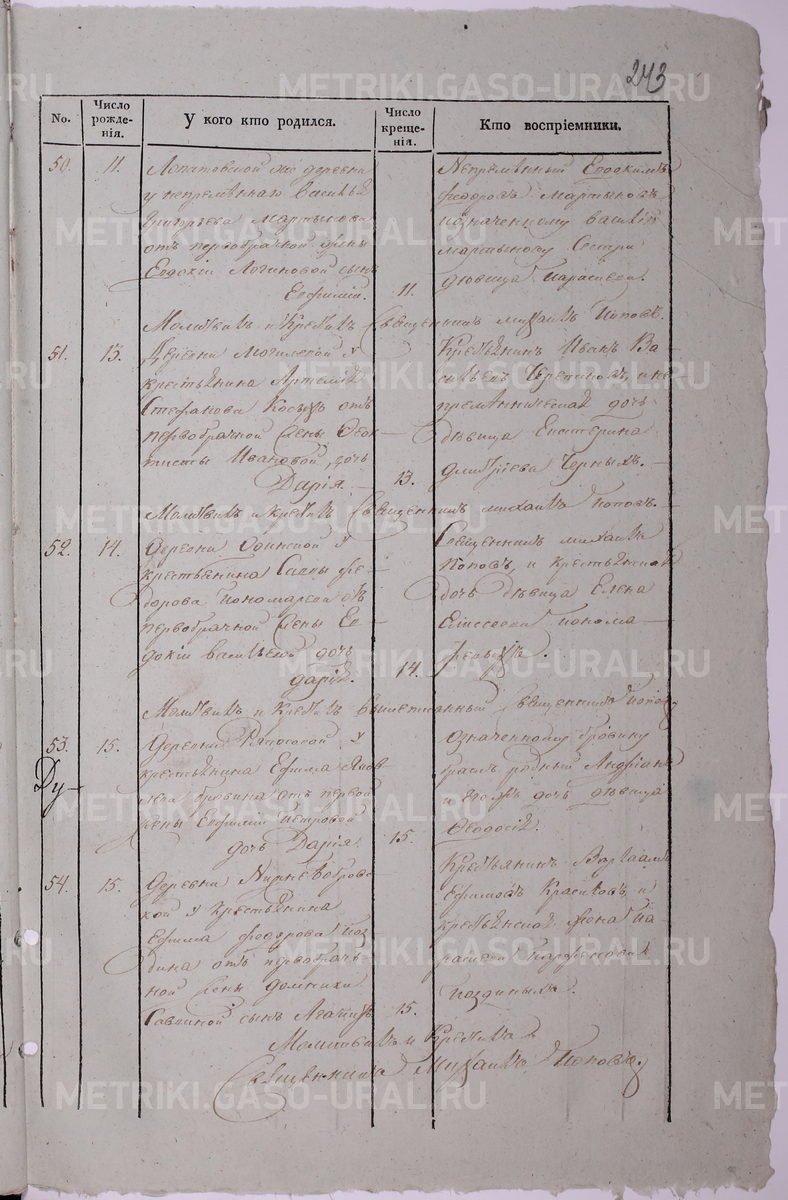 243
No.
Число рожде-нія.
У кого кто родился.
Число креще-нія.
Кто воспріемники.
50.
11.
Лопатовской же деревни
у непремѣннаго Василья
Григорьева Мартынова
отъ первобрачной жены
Евдокіи Логиновой сынъ
Евфимій.
11.
Непремѣнный Евдокимъ
Феодоровъ Мартыновъ
означенному Василію
Мартынову сестра
дѣвица Параскева.
Молитвилъ и крестилъ Священникъ Михаилъ Поповъ.
51.
13.
Деревни Могилевой у
крестьянина Артемія
Стефанова Косыхъ отъ
первобрачной жены Ѳеок-
тисты Ивановой, дочь
Дарія.
13.
Крестьянинъ Иванъ Ва-
сильевъ и не-
премѣнническая дочь
дѣвица Екатерина
Дмитріева Черныхъ.
Молитвилъ и крестилъ Священникъ Михаилъ Поповъ.
52.
14.
Деревни Одинской у
крестьянина Саввы Фе-
дорова Пономарева отъ
первобрачной жены Ев-
докіи Васильевой дочь
Дарія.
14.
Священникъ Михаилъ
Поповъ, и крестьянская
дочь дѣвица Елена
Елисеева Понома-
ревыхъ.
Молитвилъ и крестилъ вышеписанный Священникъ Поповъ
53.
Ду
15.
Деревни у
крестьянина Ефима Яков-
лева Бровина отъ первой
жены Евфиміи Петровой
дочь Дарія.
15.
Означенному Бровину
братъ родный Андріанъ
и дочь дѣвица
Ѳеодосія.
54.
15.
Деревни Нижнебобров-
ской у крестьянина
Ефима Феодорова Поз-
дина отъ первобрач-
ной жены Домники
Саввиной сынъ Агапитъ.
15.
Крестьянинъ Варлаамъ
Ефимовъ Красиковъ, и
крестьянская жена Па-
раскева Парфенова
Поздиныхъ.
Молитвилъ и крестилъ
Священникъ Михаилъ Поповъ.
METRIKI.GASO-URAL.RU